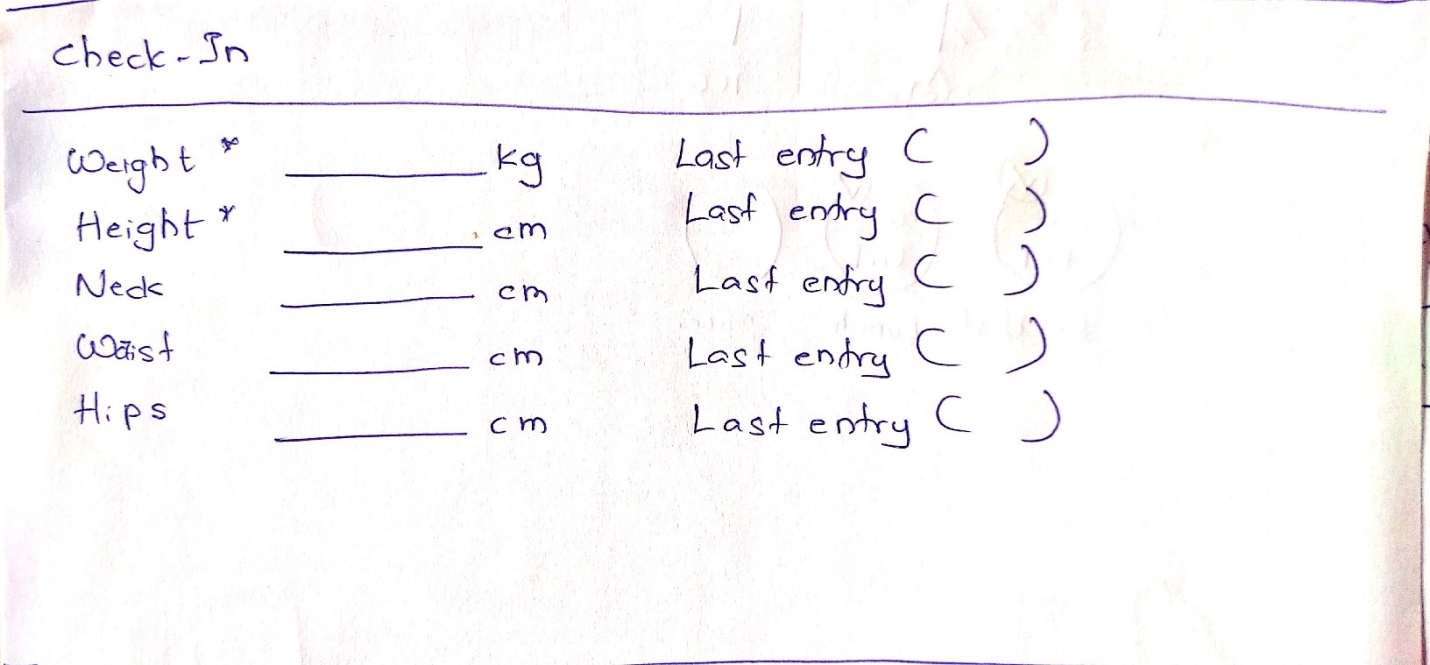 Check-In
Weight * ______ kg Last entry ( )
Height * ______ cm Last entry ( )
Neck ______ cm Last entry ( )
Waist ______ cm Last entry ( )
Hips ______ cm Last entry ( )